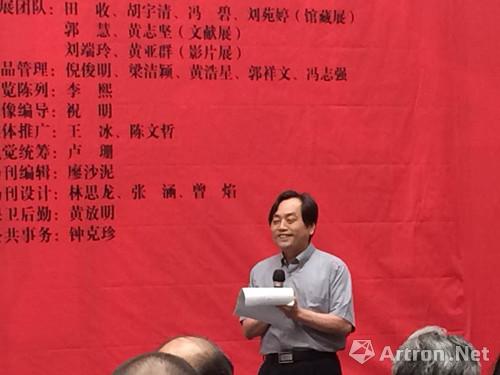 展团队：田　收、胡宇清、冯　碧、刘苑婷（馆藏展）
郭　慧、黄志坚（文献展）
刘端玲、黄亚群（影片展）
品管理：倪俊明、梁洁颖、黄浩星、郭祥文、冯志强
览陈列：李　熙
像编导：祝　明
体推广：王　冰、陈文哲
觉统筹：卢　珊
刊编辑：廖沙泥
刊设计：林思龙、张　涵、曾　焰
卫后勤：黄放明
共事务：钟克珍
Artron.Net